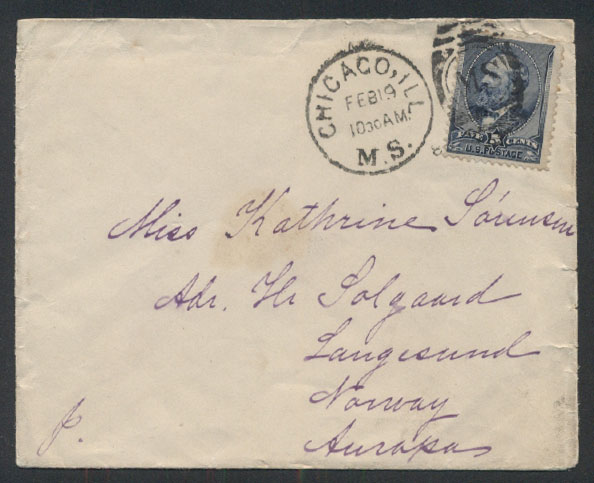 CHICAGO, ILL.
FEB 19
10 30 AM
M.S.
FIVE 5 CENTS
U.S. POSTAGE
Miss Kathrine Sørensen
Adr. Hr Solgaard
Langesund
Norway
Auropas
P.